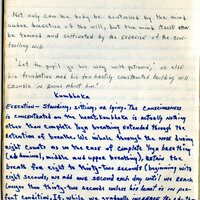 Not only can the body be controlled by the mind
under direction of the will, but the mind itself can
be trained and cultivated by the exercise of the con-
trolling will.
"Let the pupil go his way with patience, or else
his foundation and his too hastily constructed building will
crumble in pieces about him!"
Kumbhaka
Execution - Standing, sitting, or lying. The consciousness
is concentrated on the heart. Kumbhaka is actually nothing
other than complete Yoga breathing extended through the
retention of breath. We inhale through the nose during
eight counts as in the case of complete Yoga breathing
(abdominal, middle and upper breathing), retain the
breath for eight to thirty-two seconds (beginning with
eight seconds, we add one second each day until we reach
longer than thirty-two seconds unless his heart is in per-
fect condition. If, while we gradually increase the